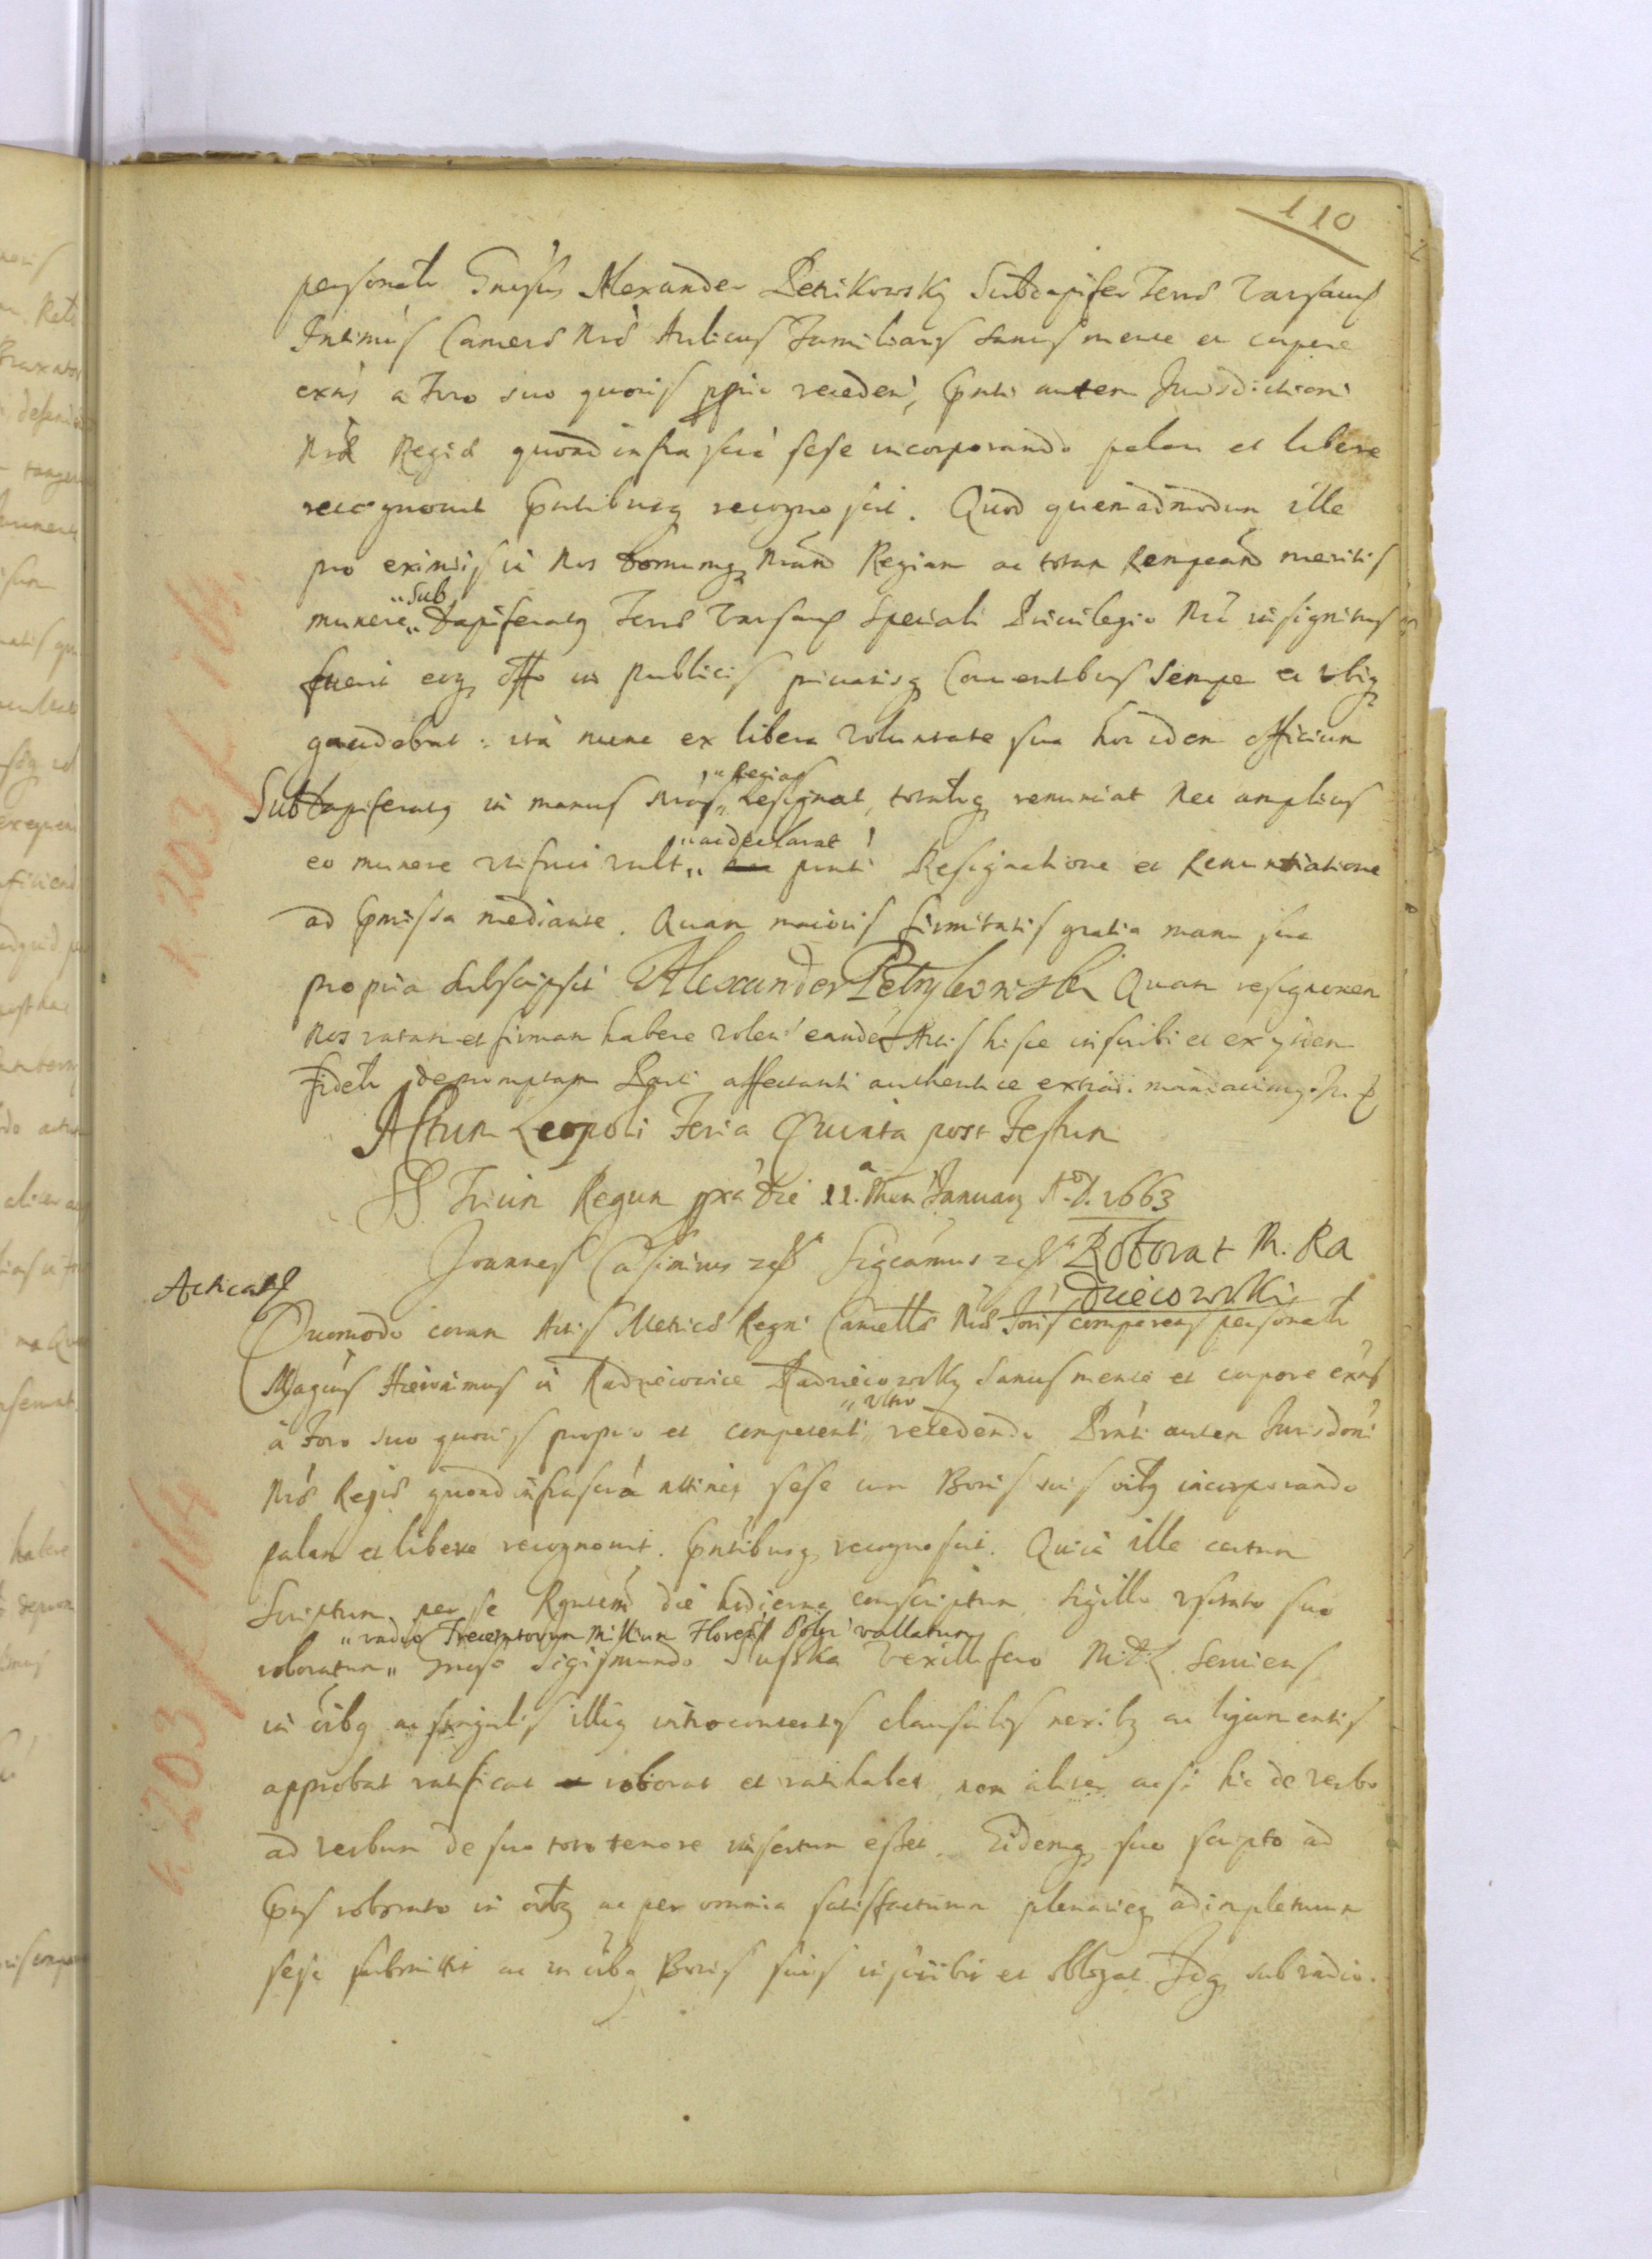 110
personatr Gnrsus Alexander Petrikowsky Subdapifer Terrӕ Varsauӕ
Intimus Camerӕ Nrӕ Aulicus Familiaris sanus mente et corpore
exns a Foro suo quovis pprio receden, Gpnti autem Jurisdictioni
Nrӕ Regiӕ quoad infrascra sese incorporando palam et libere
recognouit Gpntibusq recognoscit. Quod quemadmodum ille
pro eximijs in Nos domumq Nram Regiam ac totam Rempcam meritis
munere "Sub" Dapiferatq Terrӕ Varsauӕ Speciali Priuilegio Nro insignitus
fuerit eoq offo in publicis priuatisq Conuentibus semper et vbiq
gaudebat: ita nunc ex libera voluntate sua hoc idem officium
Subdapiferatq in manus Nras "Regias" Resignat, totalrq renunciat nec amplius
eo munere vti frui vult "ac declarat" pnti Resignatione et Renuntiatione
ad Gpmissa mediante. Quam maioris firmitatis gratia manu sua
propria subscripsit Alexander Petrykowski Quam resignonem
Nos ratam et firmam habere volen eande Actis hisce inscribi et ex ijsdem
fidelr depromptam Parti affectanti authentice extradi mandauimq. In q
Actum Leopoli Feria Quinta post Festum
SS. Trium Regum pxa die 11.a Men Januarij A.D. 1663
Joannes Casimirus Rex Sigeamus Rex Rotorat M. Ra
dziejowski
Acticatӕ
Quomodo coram Actis Metricӕ Regni Cancellӕ Nrӕ Joris comparens personalr
Magcus Hieronimus in Radziejowice Radziejowsky sanus mente et corpore exns
a Foro suo quovis proprio et competenti "vltro" recedendo Prnti autem Jurisdoni
Nrӕ Regiӕ quoad infrascra attinet sese cum Bonis suis oibq incorporando
palam et libere recognouit. Gpntibusq recognoscit. Quia ille certum
Scriptum per se Rgntem die hodierna conscriptum, sigillo vsitato suo
roboratum "vadio Trecentorum Millium Floren Polon vallatum" Gnroso Sigismundo Suffka Vexillifero M.D.L. seruiens
in oibq ac singulis illiq introcontentis clausulis nexibq ac ligamentis
approbat ratificat roborat et ratihabet, non aliter ac si hic de verbo
ad verbum de suo toto tenore insertum esset. Eidemq suo scripto ad
Gpns roborato in oibq ac per omnia satisfacturum plenarieq adimpleturum
sese submittit ac in oibq Bonis suis inscribit et obligat Idq sub vadio.